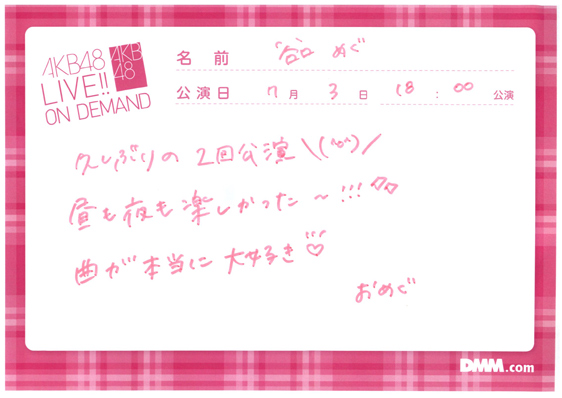 AKB48
LIVE!!
ON DEMAND
AKB
48
名前 谷口 めぐ
公演日 7月 3日 18:00 公演
久しぶりの 2回公演\(^^)/
昼も夜も楽しかった〜!!!
曲が本当に大好き♡
おめぐ
DMM.com